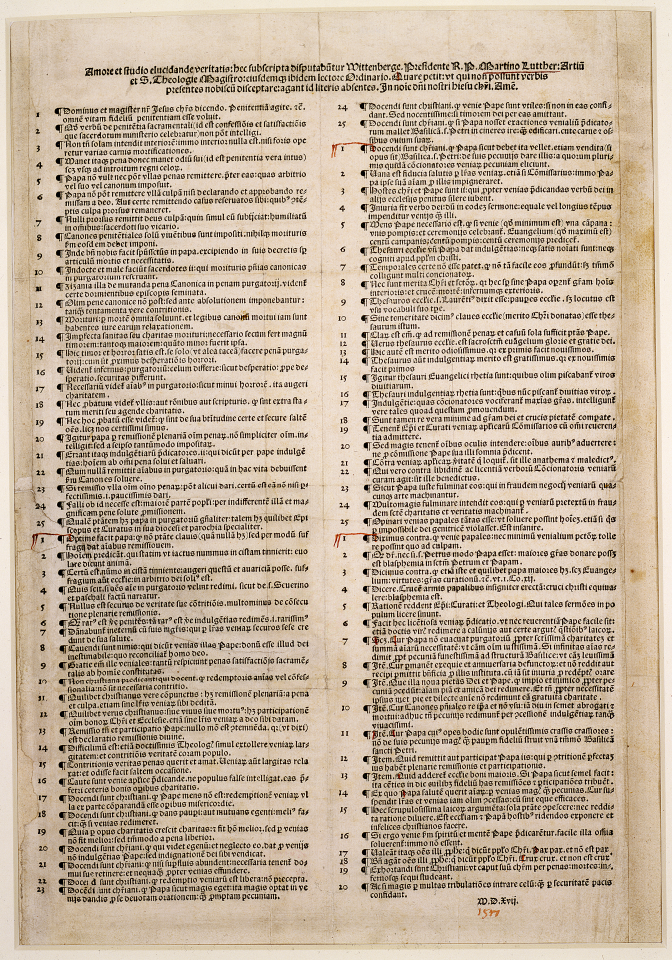 Amore et studio elucidande veritatis: hec subscripta disputabũtur Wittenberge. Presidente R. P. Martino Lutther: Artiũ
et S. Theologie Magistro: eiusdemq̃ ibidem lectore Ordinario. Quare petit: vt qui non possunt verbis
presentes nobiscũ disceptare: agant id literis absentes. In noĩe dñi nostri hiesu chr̃i. Amẽ.
1 ¶Dominus et magister nr̃ Jesus chr̃s dicendo. Penitentiã agite. ⁊c̃.
omnẽ vitam fideliũ penitentiam esse voluit.
2 ¶Qđ verbũ de penitẽtia sacramentali (id est confessiõis et satisfactiõis
que sacerdotum ministerio celebratur) non põt intelligi.
3 ¶Non tñ solam intendit interiorẽ: immo interior nulla est. nisi foris ope
retur varias carnis mortificationes.
4 ¶Manet itaq̃ pena donec manet odiũ sui (id est penitentia vera intus)
sc̃ vsq̃ ad introitum regni celoꝝ.
5 ¶Papa nõ vult nec põt vllas penas remittere. p̃ter eas: quas arbitrio
vel suo vel canonum imposuit.
6 ¶Papa nõ põt remittere vllã culpã nisi declarando et approbando re-
missam a deo. Aut certe remittendo casus reservatos sibi: quibꝰ ↄ̃tẽ
ptis culpa prorsus remaneret.
7 ¶Nulli prorsus remittit deus culpã: quin simul eũ subijciat: humiliatũ
in oĩbus: sacerdoti suo vicario.
8 ¶Canones penitẽtiales solũ viuẽtibus sunt impositi. nihilq̃ morituris
ẽm eosd em debet imponi.
9 ¶Inde bñ nobis facit sp̃ussctũs in papa. excipiendo in suis decretis sp̃
articulũ mortis et necessitatis.
10 ¶Indocte et male faciũt sacerdotes ij: qui morituris pñias canonicas
in purgatorium reseruant.
11 ¶Zizania illa de mutanda pena Canonica in penam purgatorij. vident̃
certe dormientibus episcopis seminata.
12 ¶Olim pene canonice nõ post: sed ante absolutionem imponebantur:
tanq̃ tentamenta vere contritionis.
13 ¶Morituri: p mortẽ omnia soluunt. et legibus canonũ mortui iam sunt
habentes iure earum relaxationem.
14 ¶Imperfecta sanitas seu charitas morituri: necessario secum fert magnũ
timorem: tantoq̃ maiorẽ: quãto minor fuerit ipsa.
15 ¶Hic timor et horror: satis est. se solo (vt alia taceã) facere penã purga-
torij: cum sit ꝓximus desperatiõis horrori.
16 ¶Vident̃ infernus: purgatoriũ: celum differre: sicut desperatio: ꝓpe de-
speratio. securitas differunt.
17 ¶Necessariũ videt̃ aĩabꝰ in purgatorio: sicut minui horrorẽ. ita augeri
charitatem.
18 ¶Nec ꝓbatum videt̃ vllis: aut rõnibus aut scripturis. ꝙ sint extra sta-
tum meriti seu agende charitatis.
19 ¶Nec hoc ꝓbatũ esse videt̃: ꝙ sint de sua bt̃itudine certe et secure saltẽ
oẽs. licꝫ nos certissimi simus.
20 ¶Igitur papa ꝑ remissionẽ plenariã oĩm penaꝝ. nõ simpliciter oĩm. in-
telligit: sed a seipso tantũmodo impositaꝝ.
21 ¶Errant itaq̃ indulgẽtiarũ p̃dicatores. ij: qui dicũt per pape indulgẽ
tias: hoĩem ab oĩni pena solui et saluari.
22 ¶Quin nullã remittit aĩabus in purgatorio: quã in hac vita debuissent
ẽm Canones soluere.
23 ¶Si remissio vlla oĩm oĩno penaꝝ: põt alicui dari. certũ est eã nõ nisi ꝑ-
fectissimis. i. paucissimis dari.
24 ¶Falli ob id necesse est: maiorẽ partẽ popli: per indifferẽtẽ illã et ma-
gnificam pene solute ꝓmissionem.
25 ¶Qualẽ ptãtem hꝫ papa in purgatoriũ gñaliter: talem hꝫ quilibet Epi
scopus et Curatus in sua diocesi et parochia specialiter.
1 ¶Optime facit papa: ꝙ nõ ptãte clauis (quã nullã hꝫ) sed per modũ suf
fragij dat aĩabus remissionem.
2 ¶Hoĩem predicãt. qui statim vt iactus nummus in cistam tinnierit: euo
lare dicunt animã.
3 ¶Certũ est. nũmo in cistã tinniente: augeri questũ et auariciã posse. suf-
fragiũ aũt eccl̃ie: in arbitrio dei solꝰ est.
4 ¶Quis scit. si oẽs aĩe in purgatorio velint redimi. sicut de s. Seuerino
et paschali factũ narratur.
5 ¶Nullus est securus de veritate sue cõtritiõis. multominus de cõsecu
tione plenarie remissionis.
6 ¶Qͣ rarꝰ est vẽ penitẽs: tã rarꝰ est vẽ indulgẽtias redimẽs. i. rarissimꝰ
7 ¶Dãnabunt̃ ineternũ cũ suis mgr̃is: qui ꝑ lr̃as veniaꝝ securos sese cre
dunt de sua salute.
8 ¶Cauendi sunt nimis: qui dicũt venias illas Pape: donũ esse illud dei
inestimabile: quo reconciliat̃ homo deo.
9 ¶Gratie eñi ille veniales: tantũ respiciunt penas satisfactiõis sacramẽ
talis ab homĩe constitutas.
10 ¶Non christiana p̃dicant: qui docent. ꝙ redemptoris aĩas vel cõfes-
sionalia: nõ sit necessaria contritio.
11 ¶Quilibet christianus vere cõpunctus: hꝫ remissionẽ plenariã: a pena
et culpa. etiam sine lr̃is veniaꝝ sibi debitã.
12 ¶Quilibet verus christianus: siue viuus siue mortuꝰ: hꝫ participationẽ
oĩm bonoꝝ Chr̃i et Ecclesie. etiã sine lr̃is veniaꝝ a deo sibi datam.
13 ¶Remissio tñ et participatio Pape: nullo mõ est ↄtemnẽda. qꝛ (vt dixi)
est declaratio remissionis diuine.
14 ¶Difficilimũ est: etiã doctissimis Theologꝭ simul extollere veniaꝝ lar-
gitatem: et contritiõis veritatẽ coram populo.
15 ¶Contritionis veritas penas querit et amat. Veniaꝝ aũt largitas rela
xat: et odisse facit saltem occasione.
16 ¶Caute sunt venie aplice p̃dicande. ne populus false intelligat. eas p̃-
ferri ceteris bonis oꝑibus charitatis.
17 ¶Docendi sunt christiani. ꝙ Pape mens nõ est: redemptionẽ veniaꝝ vl
la ex parte cõparandã esse oꝑibus misericordie.
18 ¶Docendi sunt christiani. ꝙ dans pauꝑi: aut mutuans egenti: meliꝰ fa-
cit: ꝙ̃ si venias redimeret.
19 ¶Quia ꝑ opus charitatis crescit charitas: et fit hõ melior. sed ꝑ venias
nõ fit melior: sed tm̃modo a pena liberior.
20 ¶Docendi sunt chr̃iani. ꝙ qui videt egenũ: et neglecto eo. dat ꝓ venijs
nõ indulgentias Pape: sed indignationẽ dei sibi vendicat.
21 ¶Docendi sunt chr̃iani. ꝙ nisi suꝑfluis abundent: necessaria tenent̃ do-
mui sue retinere: et nequaq̃ ꝓpter venias effundere.
22 ¶Docendi sunt christiani. ꝙ redemptio veniarũ est libera: nõ precepta.
23 ¶Docẽdi sunt chr̃iani. ꝙ Papa sicut magis eget: ita magis optat in ve
nijs dandis ꝓ se deuotam orationem: ꝙ̃ ꝓmptam pecuniam.
24 ¶Docendi sunt christiani. ꝙ venie Pape sunt vtiles: si non in eas confi-
dant. Sed nocentissime: si timorem dei per eas amittant.
25 ¶Docendi sunt chr̃iani. ꝙ si Papa nosset exactiones venialiũ p̃dicato-
rum mallet Basilicã. s. Petri in cineres ire: ꝙ̃ edificari. cute carne et os-
sibus ouium suaꝝ.
1 ¶Docendi sunt chr̃iani. ꝙ Papa sicut debet ita vellet. etiam vendita (si
opus sit) Basilicã. s. Petri: de suis pecunijs dare illis: a quorum pluri-
mis quidã cõcionatores veniaꝝ pecuniam eliciunt.
2 ¶Vana est fiducia salutis ꝑ lr̃as veniaꝝ. etiã si Cõmissarius: immo Pa-
pa ipse suã aĩam ꝓ illis impigneraret.
3 ¶Hostes chr̃i et Pape sunt isti: qui ꝓpter venias p̃dicandas verbũ dei in
alijs ecclesijs penitus silere iubent.
4 ¶Iniuria fit verbo dei: dũ in eodẽ sermone: equale vel longius tẽpus
impenditur venijs ꝙ̃ illi.
5 ¶Mens Pape necessario est. ꝙ si venie (qđ minimum est) vna cãpana:
vnis pompis: et ceremonijs celebrant̃. Euangelium (qđ maximũ est)
centũ campanis: centũ pompis: centũ ceremonijs predicet̃.
6 ¶Thesauri eccl̃ie vñ Papa dat indulgẽtias: neq̃ satis nõiati sunt: neq̃
cogniti apud ppl̃m christi.
7 ¶Temporales certe nõ esse patet. ꝙ nõ tã facile eos ꝓfundũt: sꝫ tm̃mõ
colligunt multi concionatoꝝ.
8 ¶Nec sunt merita Chr̃i et sctõꝝ. qꝛ hec sp̃ sine Papa oꝑant̃ grãm hoĩs
interioris: et crucẽ mortẽ: infernumq̃ exterioris.
9 ¶Thesauros eccl̃ie. s. Laurẽtiꝰ dixit esse: pauꝑes eccl̃ie. sꝫ locutus est
vsu vocabuli suo tꝑe.
10 ¶Sine temeritate dicimꝰ claues eccl̃ie (merito Chr̃i donatas) esse the-
saurum istum.
11 ¶Claꝝ est eñi. ꝙ ad remissionẽ penaꝝ et casuũ sola sufficit ptãs Pape.
12 ¶Verus thesaurus eccl̃ie. est sacrosctm̃ euãgelium glorie et gratie dei.
13 ¶Hic aũt est merito odiosissimus. qꝛ ex primis facit nouissimos.
14 ¶Thesaurus aũt indulgentiaꝝ merito est gratissimus. qꝛ ex nouissimis
facit primos
15 ¶Igitur thesauri Euangelici rhetia sunt: quibus olim piscabant̃ viros
diuitiarum.
16 ¶Thesauri indulgentiaꝝ rhetia sunt: qbus nũc piscant̃ diuitias viroꝝ.
17 ¶Indulgẽtie: quas cõcionatores vociferant̃ maxĩas grãs. intelligunt̃
vere tales quoad questum ꝓmouendum.
18 ¶Sunt tamen re vera minime ad grãm dei et crucis pietatẽ compate.
19 ¶Tenent̃ Epĩ et Curati veniaꝝ apl̃icarũ Cõmissarios cũ oĩni reueren-
tia admittere.
20 ¶Sed magis tenent̃ oĩbus oculis intendere: oĩbus auribꝰ aduertere:
ne ꝓ cõmissione Pape sua illi somnia p̃dicent.
21 ¶Cõtra veniaꝝ apl̃icaꝝ v̓itatẽ q̃ loquit̃. sit ille anathema et maledictꝰ.
22 ¶Qui vero contra libidinẽ ac licentiã verboꝝ Cõcionatoris veniarũ
curam agit: sit ille benedictus.
23 ¶Sicut Papa iuste fulminat eos: qui in fraudem negocij veniarũ qua-
cunq̃ arte machinantur.
24 ¶Multomagis fulminare intendit eos: qui ꝑ veniarũ pretextũ in frau-
dem sctẽ charitatis et veritatis machinant̃.
25 ¶Opinari venias papales tãtas esse: vt soluere possint hoĩes. etiã si qs
ꝑ impossibile dei genitricẽ violasset. Est insanire.
1 ¶Dicimus contra. ꝙ venie papales: nec minimũ venialium petõꝝ tolle
re possint quo ad culpam.
2 ¶Qđ dr̃. nec si. s. Petrus modo Papa esset: maiores grãs donare possꝫ
est blasphemia in sctm̃ Petrum et Papam.
3 ¶Dicimus contra. ꝙ etiã iste et quilibet papa maiores hꝫ. scꝫ Euange-
lium: virtutes: grãs curationũ. ⁊c̃. vt. i. Co. xij.
4 ¶Dicere. Crucẽ armis papalibus insigniter erectã: cruci christi equiua-
lere: blasphemia est.
5 ¶Rationẽ reddent Epĩ: Curati: et Theologi. Qui tales sermões in po
pulum licere sinunt.
6 ¶Facit hec licẽtiosa veniaꝝ p̃dicatio. vt nec reuerentiã Pape facile sit:
etiã doctis viris redimere a calũnijs aut certe argutꝭ q̃stiõibꝰ laicoꝝ.
7 ¶Scꝫ. Cur Papa nõ euacuat purgatoriũ ꝓpter sctissimã charitatẽ et
summã aĩarũ necessitatẽ: vt cãm oĩm iustissimã. Si infinitas aĩas re-
dimit ꝓpter pecuniã funestissimã ad structurã Basilice: vt cãꝫ leuissimã
8 ¶Itẽ. Cur ꝑmanẽt exequie et anniuersaria defunctoꝝ: et nõ reddit aut
recipi ꝑmittit bñficia ꝓ illis instituta. cũ iã sit iniuria ꝓ redẽptꝭ orare
9 ¶Itẽ. Que illa noua pietas Dei et Pape. ꝙ impio et inimico ꝓpter pe-
cuniã ↄcedũt: aĩam piã et amicã dei redimere. Et tñ ꝓpter necessitatẽ
ipsius met pie et dilecte aĩe nõ redimunt eã gratuita charitate.
10 ¶Itẽ. Cur Canones pñiales re ip̃a et nõ vsu: iã diu in semet abrogati et
mortui: adhuc tñ pecunijs redimunt̃ per ↄcessionẽ indulgentiaꝝ tanꝗ̃
viuacissimi.
11 ¶Itẽ. Cur Papa cuiꝰ opes hodie sunt opulẽtissimis crassis crassiores:
nõ de suis pecunijs magꝭ ꝗ̃ pauꝑum fideliũ struit vnã tm̃mõ Basilicã
sancti Petri.
12 ¶Item. Quid remittit aut participat Papa ijs: qui ꝑ ↄtritionẽ ꝑfectaꝫ
ius habent plenarie remissionis et participationis.
13 ¶Item. Quid adderet̃ eccl̃ie boni maioris. Si Papa sicut semel facit: ita cẽties in die cuilibꝫ fideliũ has remissiões et ꝑticipatiões tribuẽt.
14 ¶Ex quo Papa salutẽ querit aĩarꝫ ꝑ venias magꝭ ꝗ̃ pecunias. Cur su-
spendit lr̃as et venias iam olim ↄcessas: cũ sint eque efficaces.
15 ¶Hec scrupulosissima laicoꝝ argumẽta: sola ptãte ↄpescere: nec reddi-
ta ratione diluere. Est eccl̃iam et Papã hostibꝰ ridendos exponere et
infelices christianos facere.
16 ¶Si ergo venie ẽm spiritũ et mentẽ Pape p̃dicarent̃. facile illa oĩnia
soluerent̃: immo nõ essent.
17 ¶Valeãt itaq̃ oẽs illi ꝓphẽ: q̃ dicũt pplo Chr̃i. Pax pax. et nõ est pax
18 ¶Bñ agãt oẽs illi ꝓphẽ: q̃ dicũt pplo Chr̃i. Crux crux. et non est crux
19 ¶Exhortandi sunt Christiani: vt caput suũ chr̃m per penas: mortes: in-
fernosq̃ sequi studeant.
20 ¶Ac si magis ꝑ multas tribulatiões intrare celũ: ꝗ̃ ꝑ securitatẽ pacis
confidant.
M.D.Xvij.